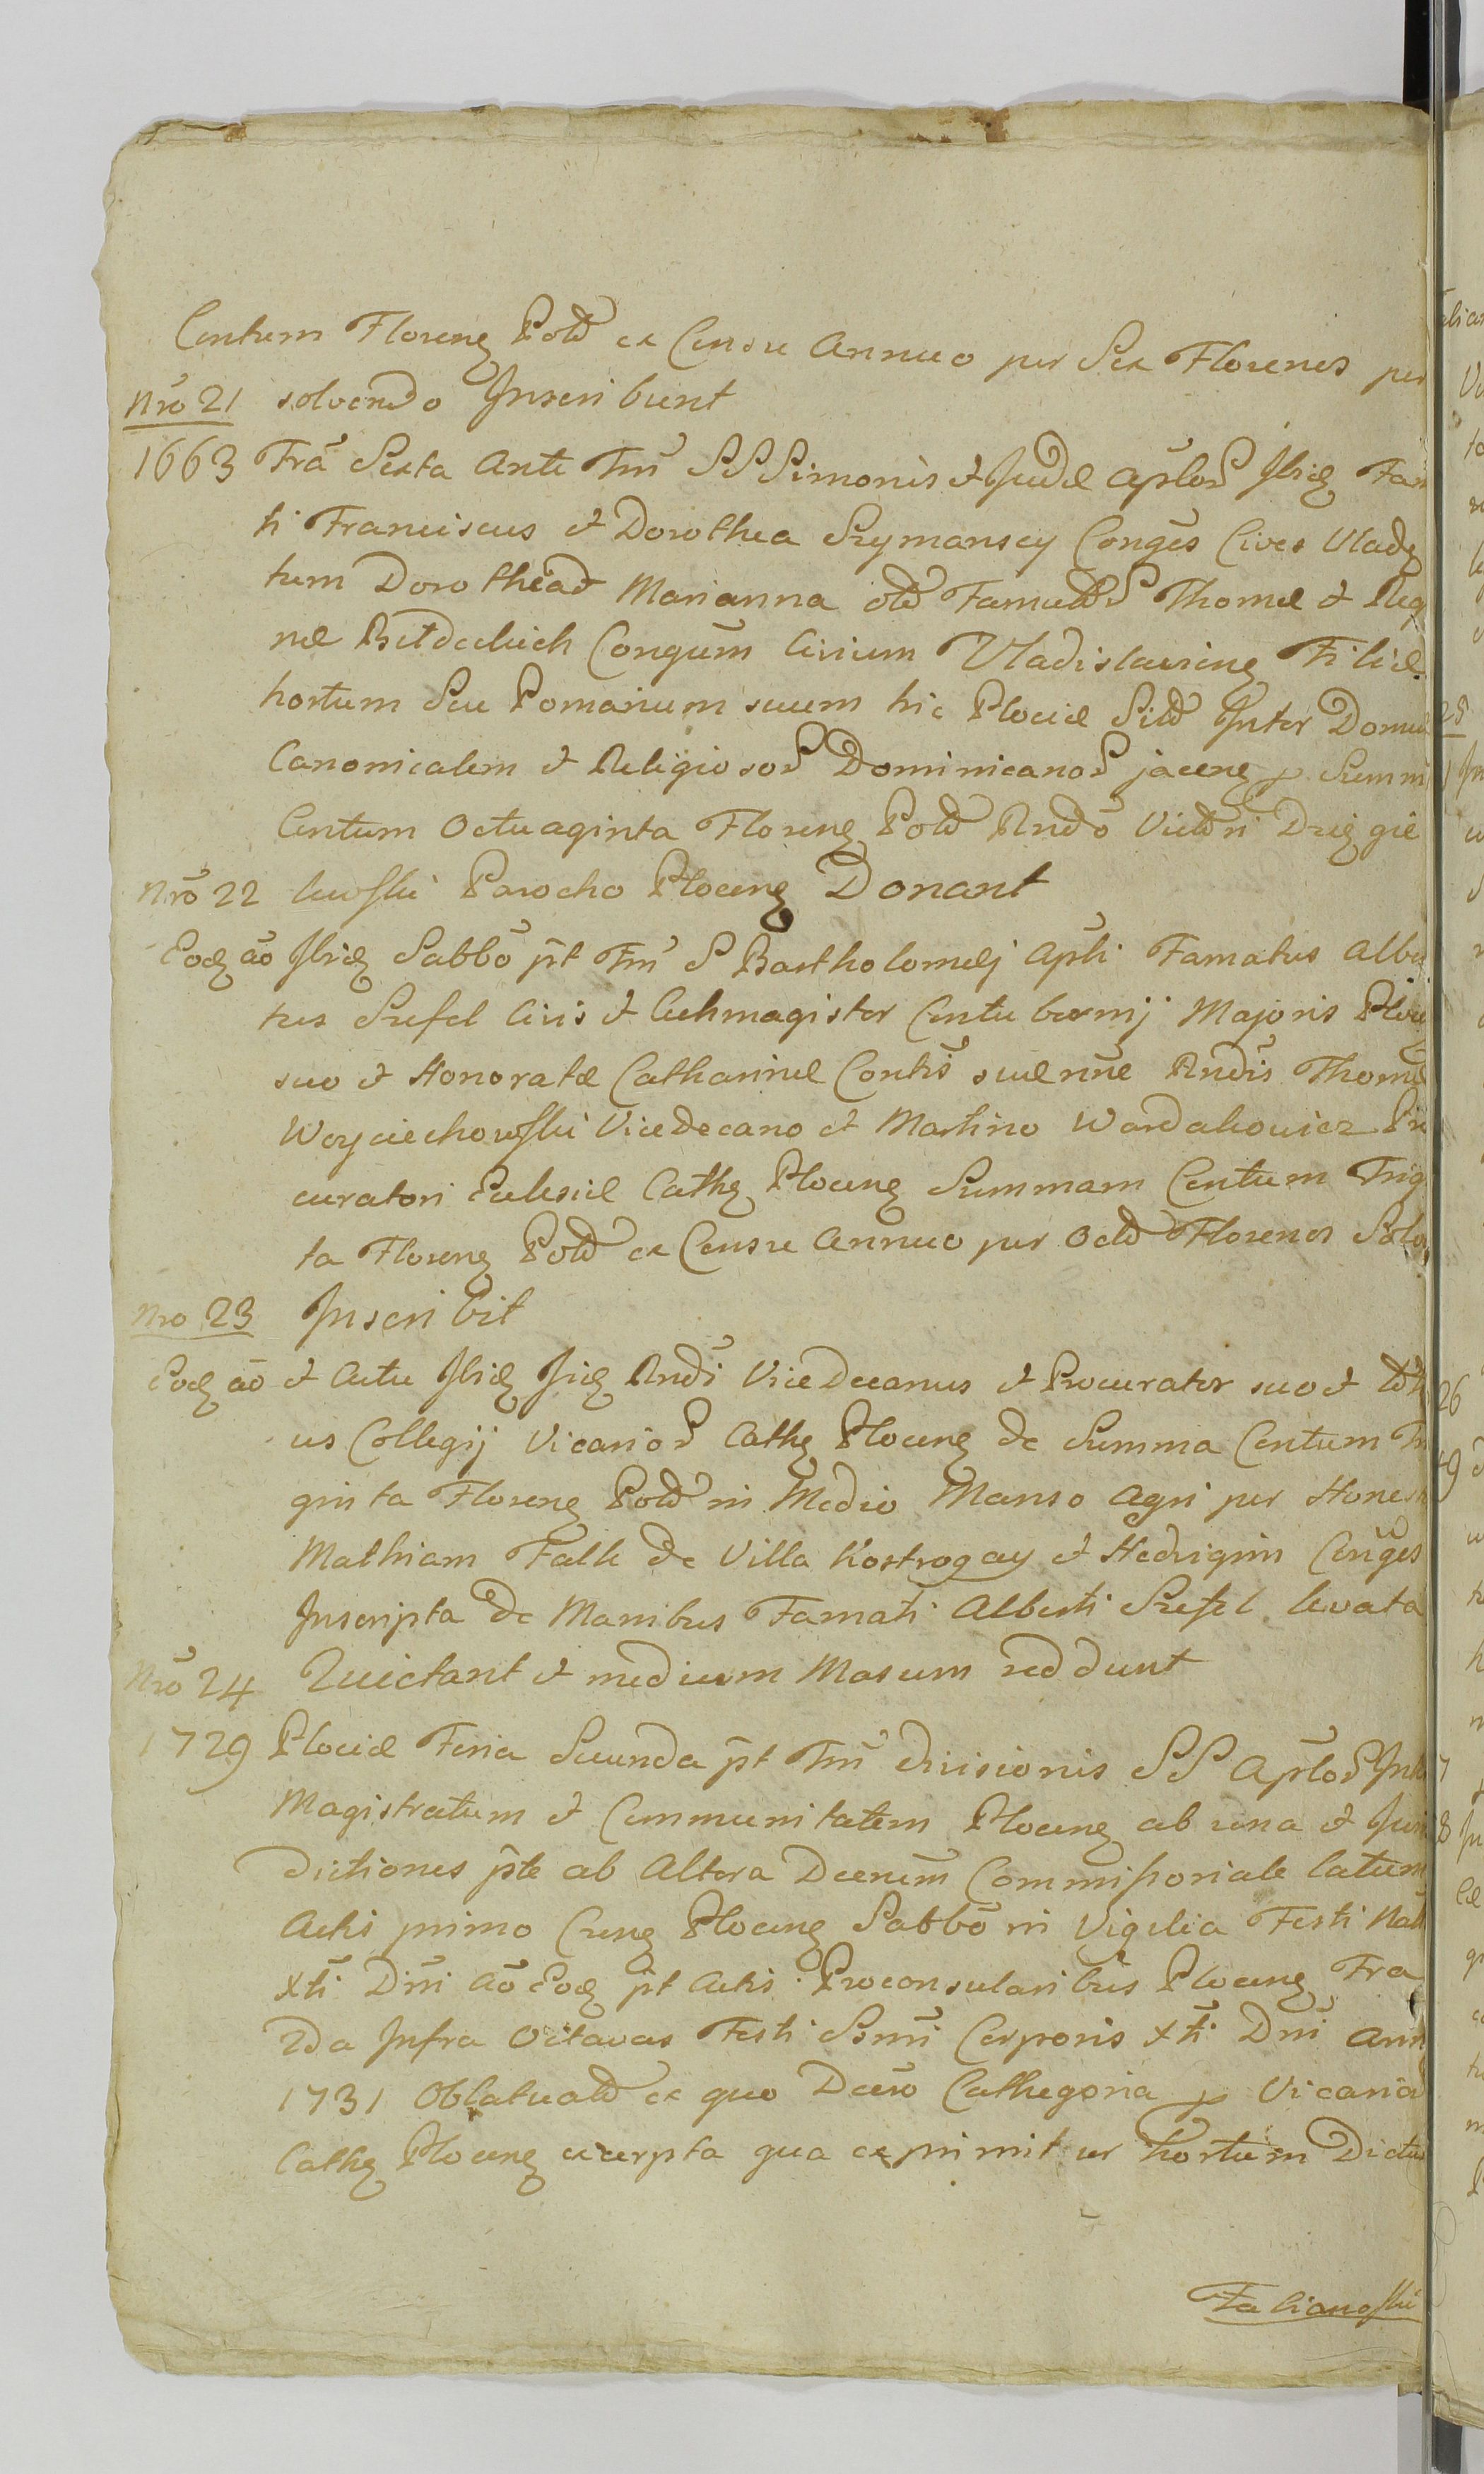 Centum Floreng Pold ex Censu Annuo per Sex Florenos per
Nrō 21 solvendo Inscribunt
1663 Frā Sexta Ante Fm̄ SS Simonis et Judæ Aplor̄ Ibidẽ Fam
ti Franciscus et Dorothea Szymanscy Conges Cives Vladg
tum Dorothea Marianna olim Famator̄ Thomæ et Reg
næ Congum̄ Civium Vladislaviens Filiæ
hortum Seu Pomarium suum hic Plociæ Sit Inter Domu
Canonicalem et Religiosor̄ Dominicanor̄ jacens p Summ
Centum Octuaginta Florens Pol Rndō
lewski Parocho Plocens Donant
Nrō 22
Eod aō Ibid Sabbō pt Fm̄ S Bartholomæj Apli Famatus Alber
tus Szefel Civis et Cechmagister Contubernij Majoris Ploc
suo et Honoratæ Catharinæ Contis suæ nn̄e Rndis Thomæ
Woyciechowski Vicedecano et Martino Wardakowicz Pro
curatori Ecclesiæ Cathg Plocens Summam Centum Trig
ta Florens Pol ex Censu Annuo per Octo Florenos Solv
Nro 23 Inscribit
Eod aō et Actu Ibid Iid Rndi ViceDecanus et Procurator suo et toti
us Collegij Vicarior̄ Cathg Plocens de Summa Centum Tri
ginta Florens Pol in Medio Manso Agri per Honest
Mathiam Falk de Villa Kostrogay et Hedvigim Conges
Inscripta de Manibus Famati Alberti Szefel levata
Nrō 24 Quietant et medium Masum reddunt
1729 Plociæ Feria Secunda pt Fm̄ divisionis SS Aplor̄ Inter
Magistratum et Communitatem Plocens ab una et Juris
dictiones pte ab Altera Decretm̄ Commissoriale latum
Actis primo Cens Plocens Sabbō in Vigilia Festi Nat
Xti Dn̄i Aō Eod pt Actis Proconsularibus Plocens Fra
2da Infra Octavas Festi Ssmi Corporis Xti Dni Ann
1731 Oblatuat ex quo Decrō Cathegoria p Vicarios
Cathg Plocens excerpta qua exprimitur hortum Dictu